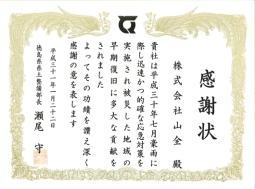 感謝状
株式会社山全 殿
貴社は平成三十年七月豪雨に
際し迅速かつ的確な応急対策を
実施され被災した地域の
早期復旧に多大な貢献を
されました
よってその功績を讃え深く
感謝の意を表します
平成三十一年一月二十二日
徳島県県土整備部長 瀬尾 守